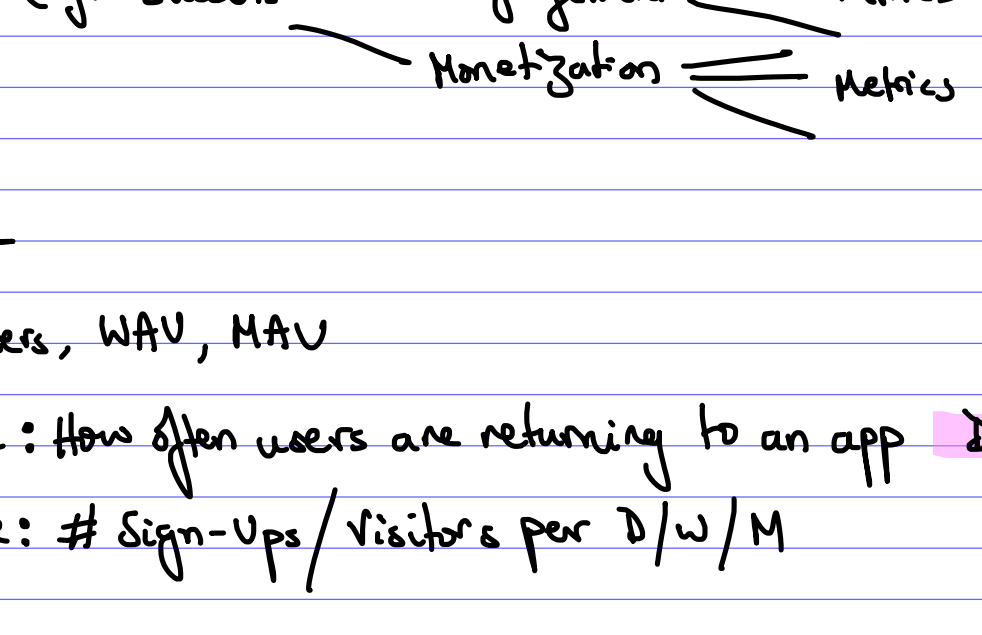 Monetization Metrics
ers, WAU, MAU
: How often users are returning to an app D
: # Sign-Ups/Visitors per D/W/M